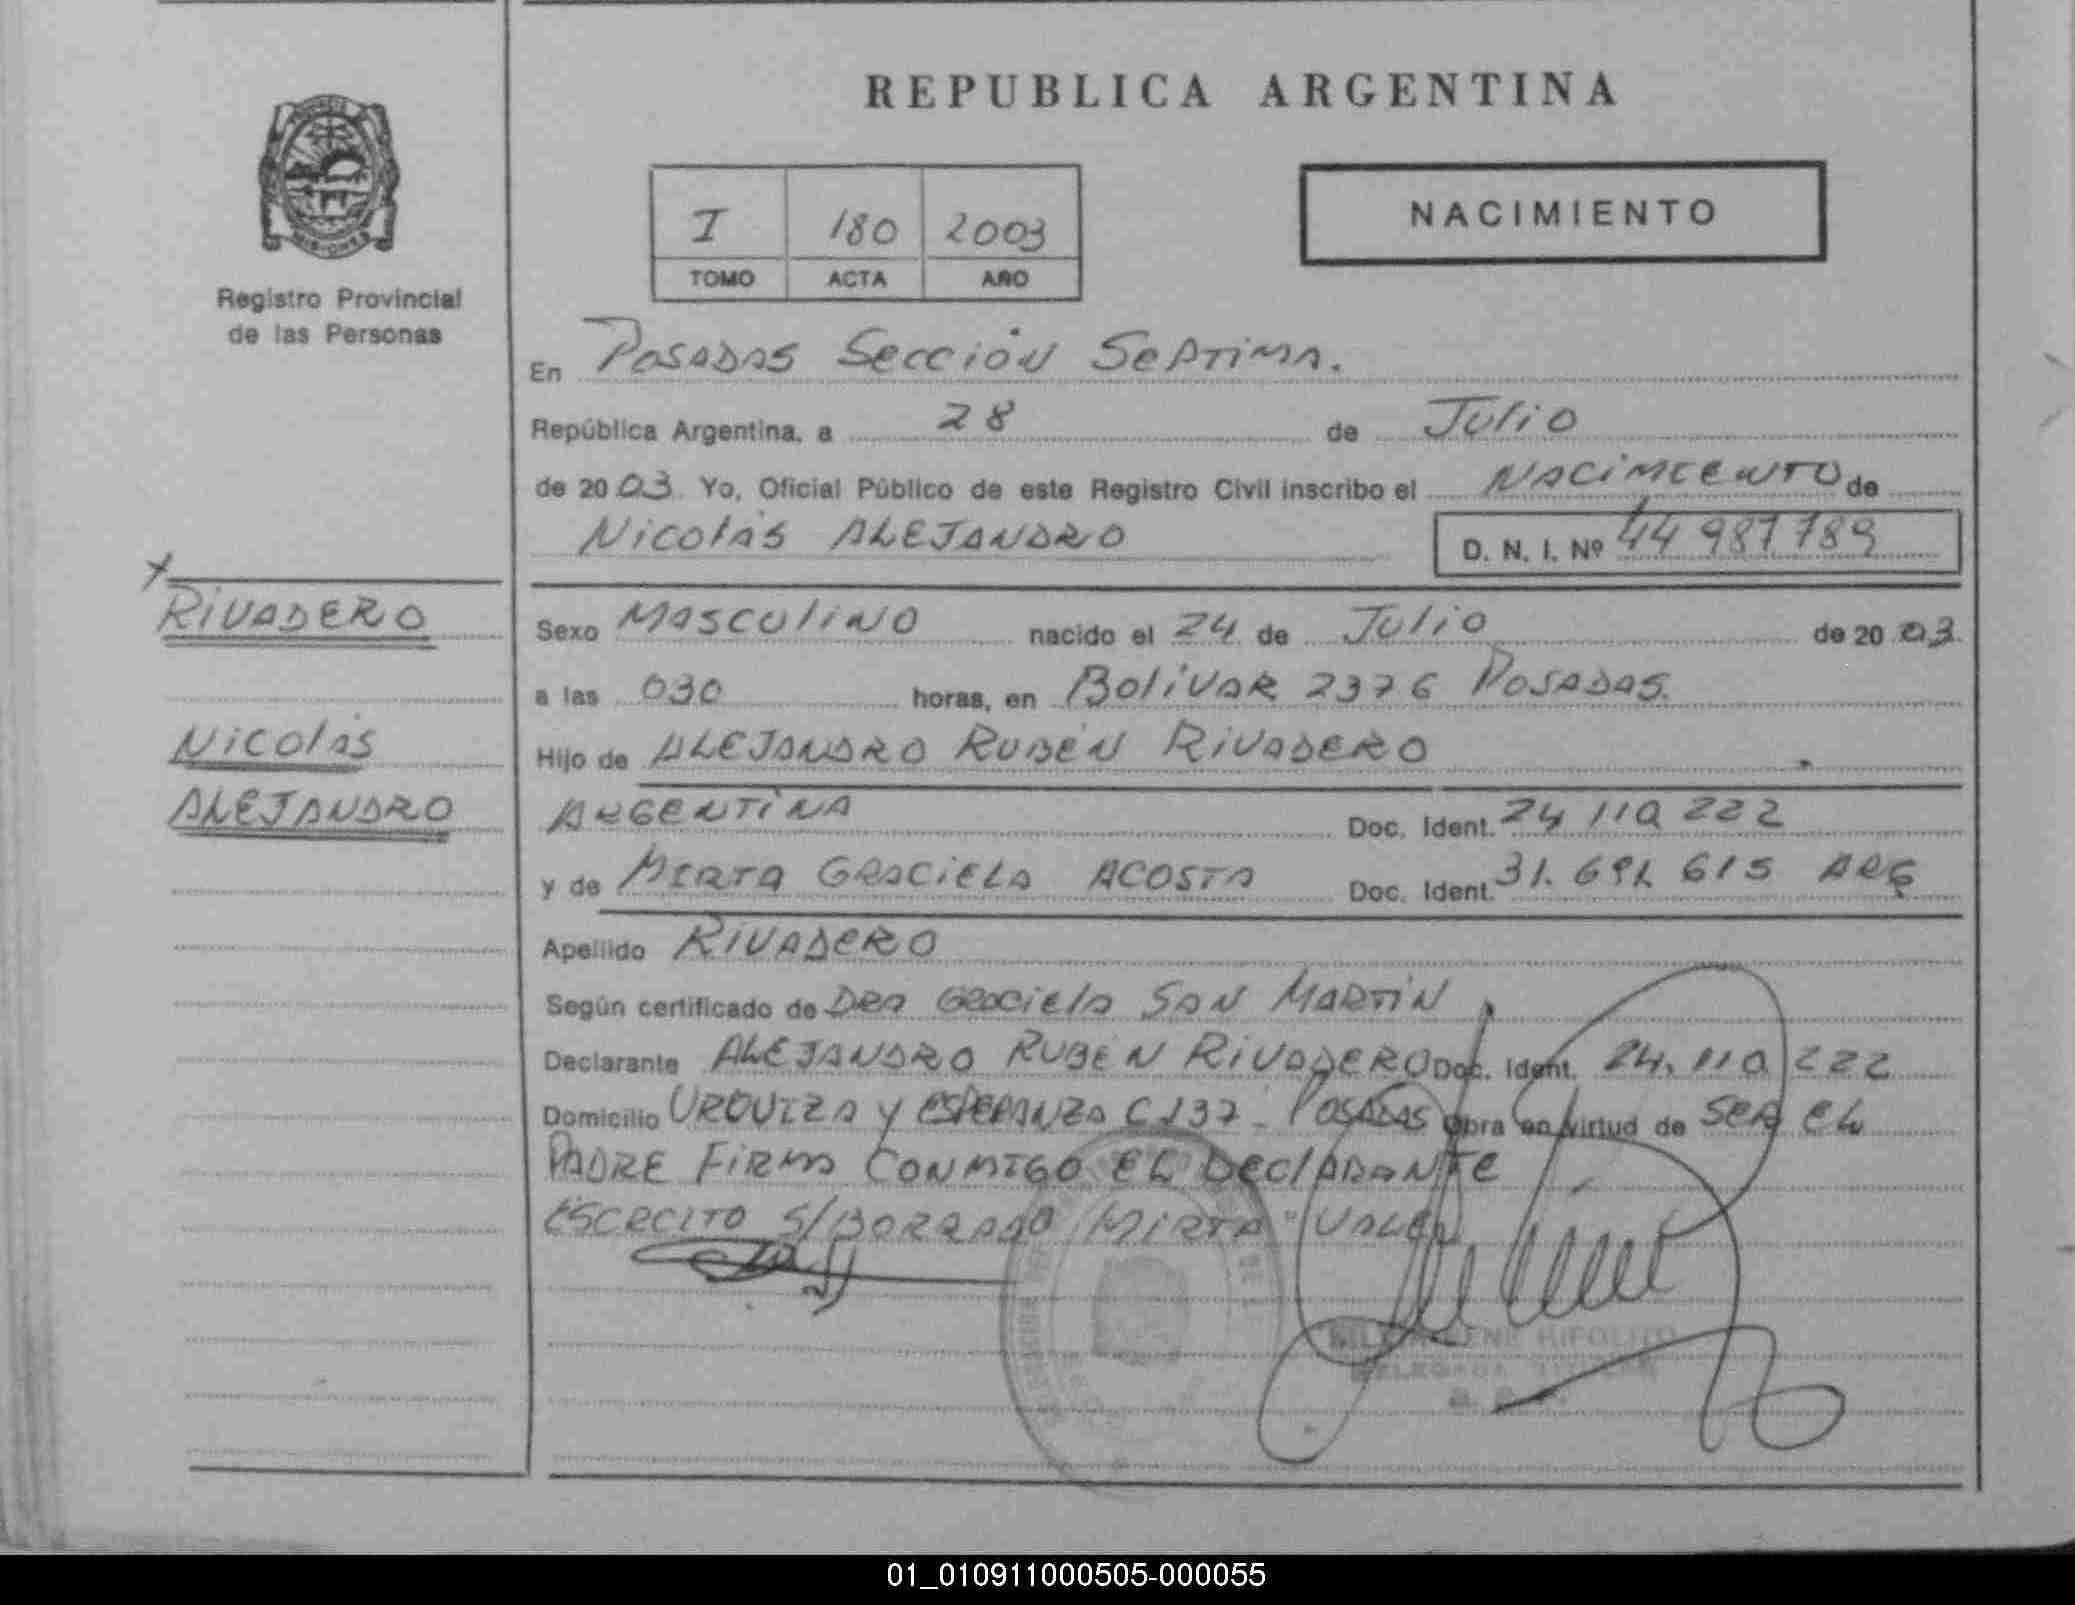 REPUBLICA ARGENTINA
MISIONES
Registro Provincial
de las Personas
I 180 2003
TOMO ACTA AÑO
NACIMIENTO
En Posadas Sección Septima.
República Argentina, a 28 de Julio
de 2003 Yo, Oficial Público de este Registro Civil inscribo el Nacimiento de
Nicolás Alejandro D. N. I. Nº 44 987 789
RIVADERO
Nicolás
ALEJANDRO
Sexo Masculino nacido el 24 de Julio de 2003
a las 030 horas, en Bolivar 2376 Posadas.
Hijo de Alejandro Rubén Rivadero
Argentina Doc. Ident. 24 110 222
y de Mirta Graciela Acosta Doc. Ident. 31. 691 615 Arg
Apellido Rivadero
Según certificado de Dra Graciela San Martín
Declarante Alejandro Ruben Rivadero Doc. Ident. 24. 110 222
Domicilio Urquiza y Esperanza C 137 - Posadas Obra en virtud de ser el
Padre Firma conmigo el declarante
escrito s/borrado Mirta "Vale"
RENE HIPOLITO
01_010911000505-000055